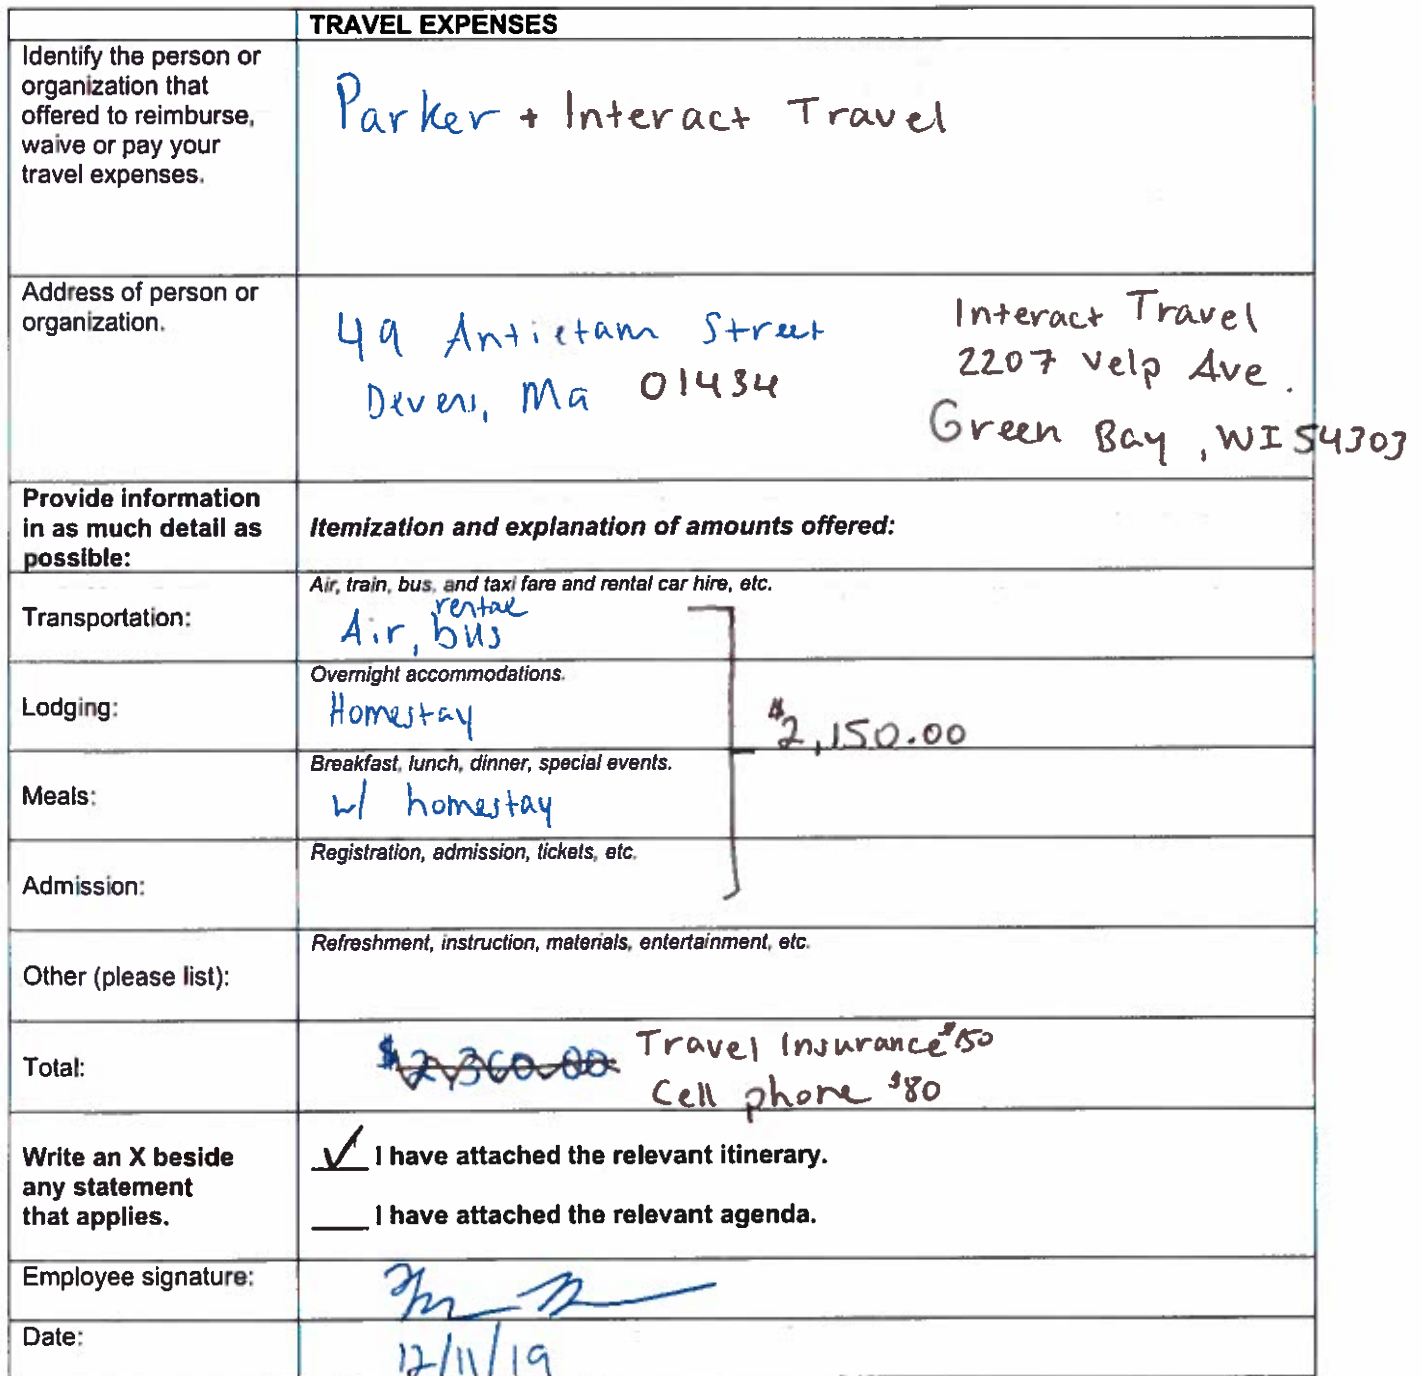 TRAVEL EXPENSES
Identify the person or
organization that
offered to reimburse,
waive or pay your
travel expenses.
Parker + Interact Travel
Address of person or
organization.
49 Antietam Street
Devens, Ma 01434
Interact Travel
2207 Velp Ave.
Green Bay, WI 54303
Provide information
in as much detail as
possible:
Itemization and explanation of amounts offered:
Transportation:
Air, train, bus, and taxi fare and rental car hire, etc.
rental
Air, bus
Lodging:
Overnight accommodations.
Homestay
$2,150.00
Meals:
Breakfast, lunch, dinner, special events.
w/ homestay
Admission:
Registration, admission, tickets, etc.
Other (please list):
Refreshment, instruction, materials, entertainment, etc.
Total:
$2,360.00
Travel Insurance $150
Cell phone $80
Write an X beside
any statement
that applies.
✓ I have attached the relevant itinerary.
___ I have attached the relevant agenda.
Employee signature:
Date:
12/11/19